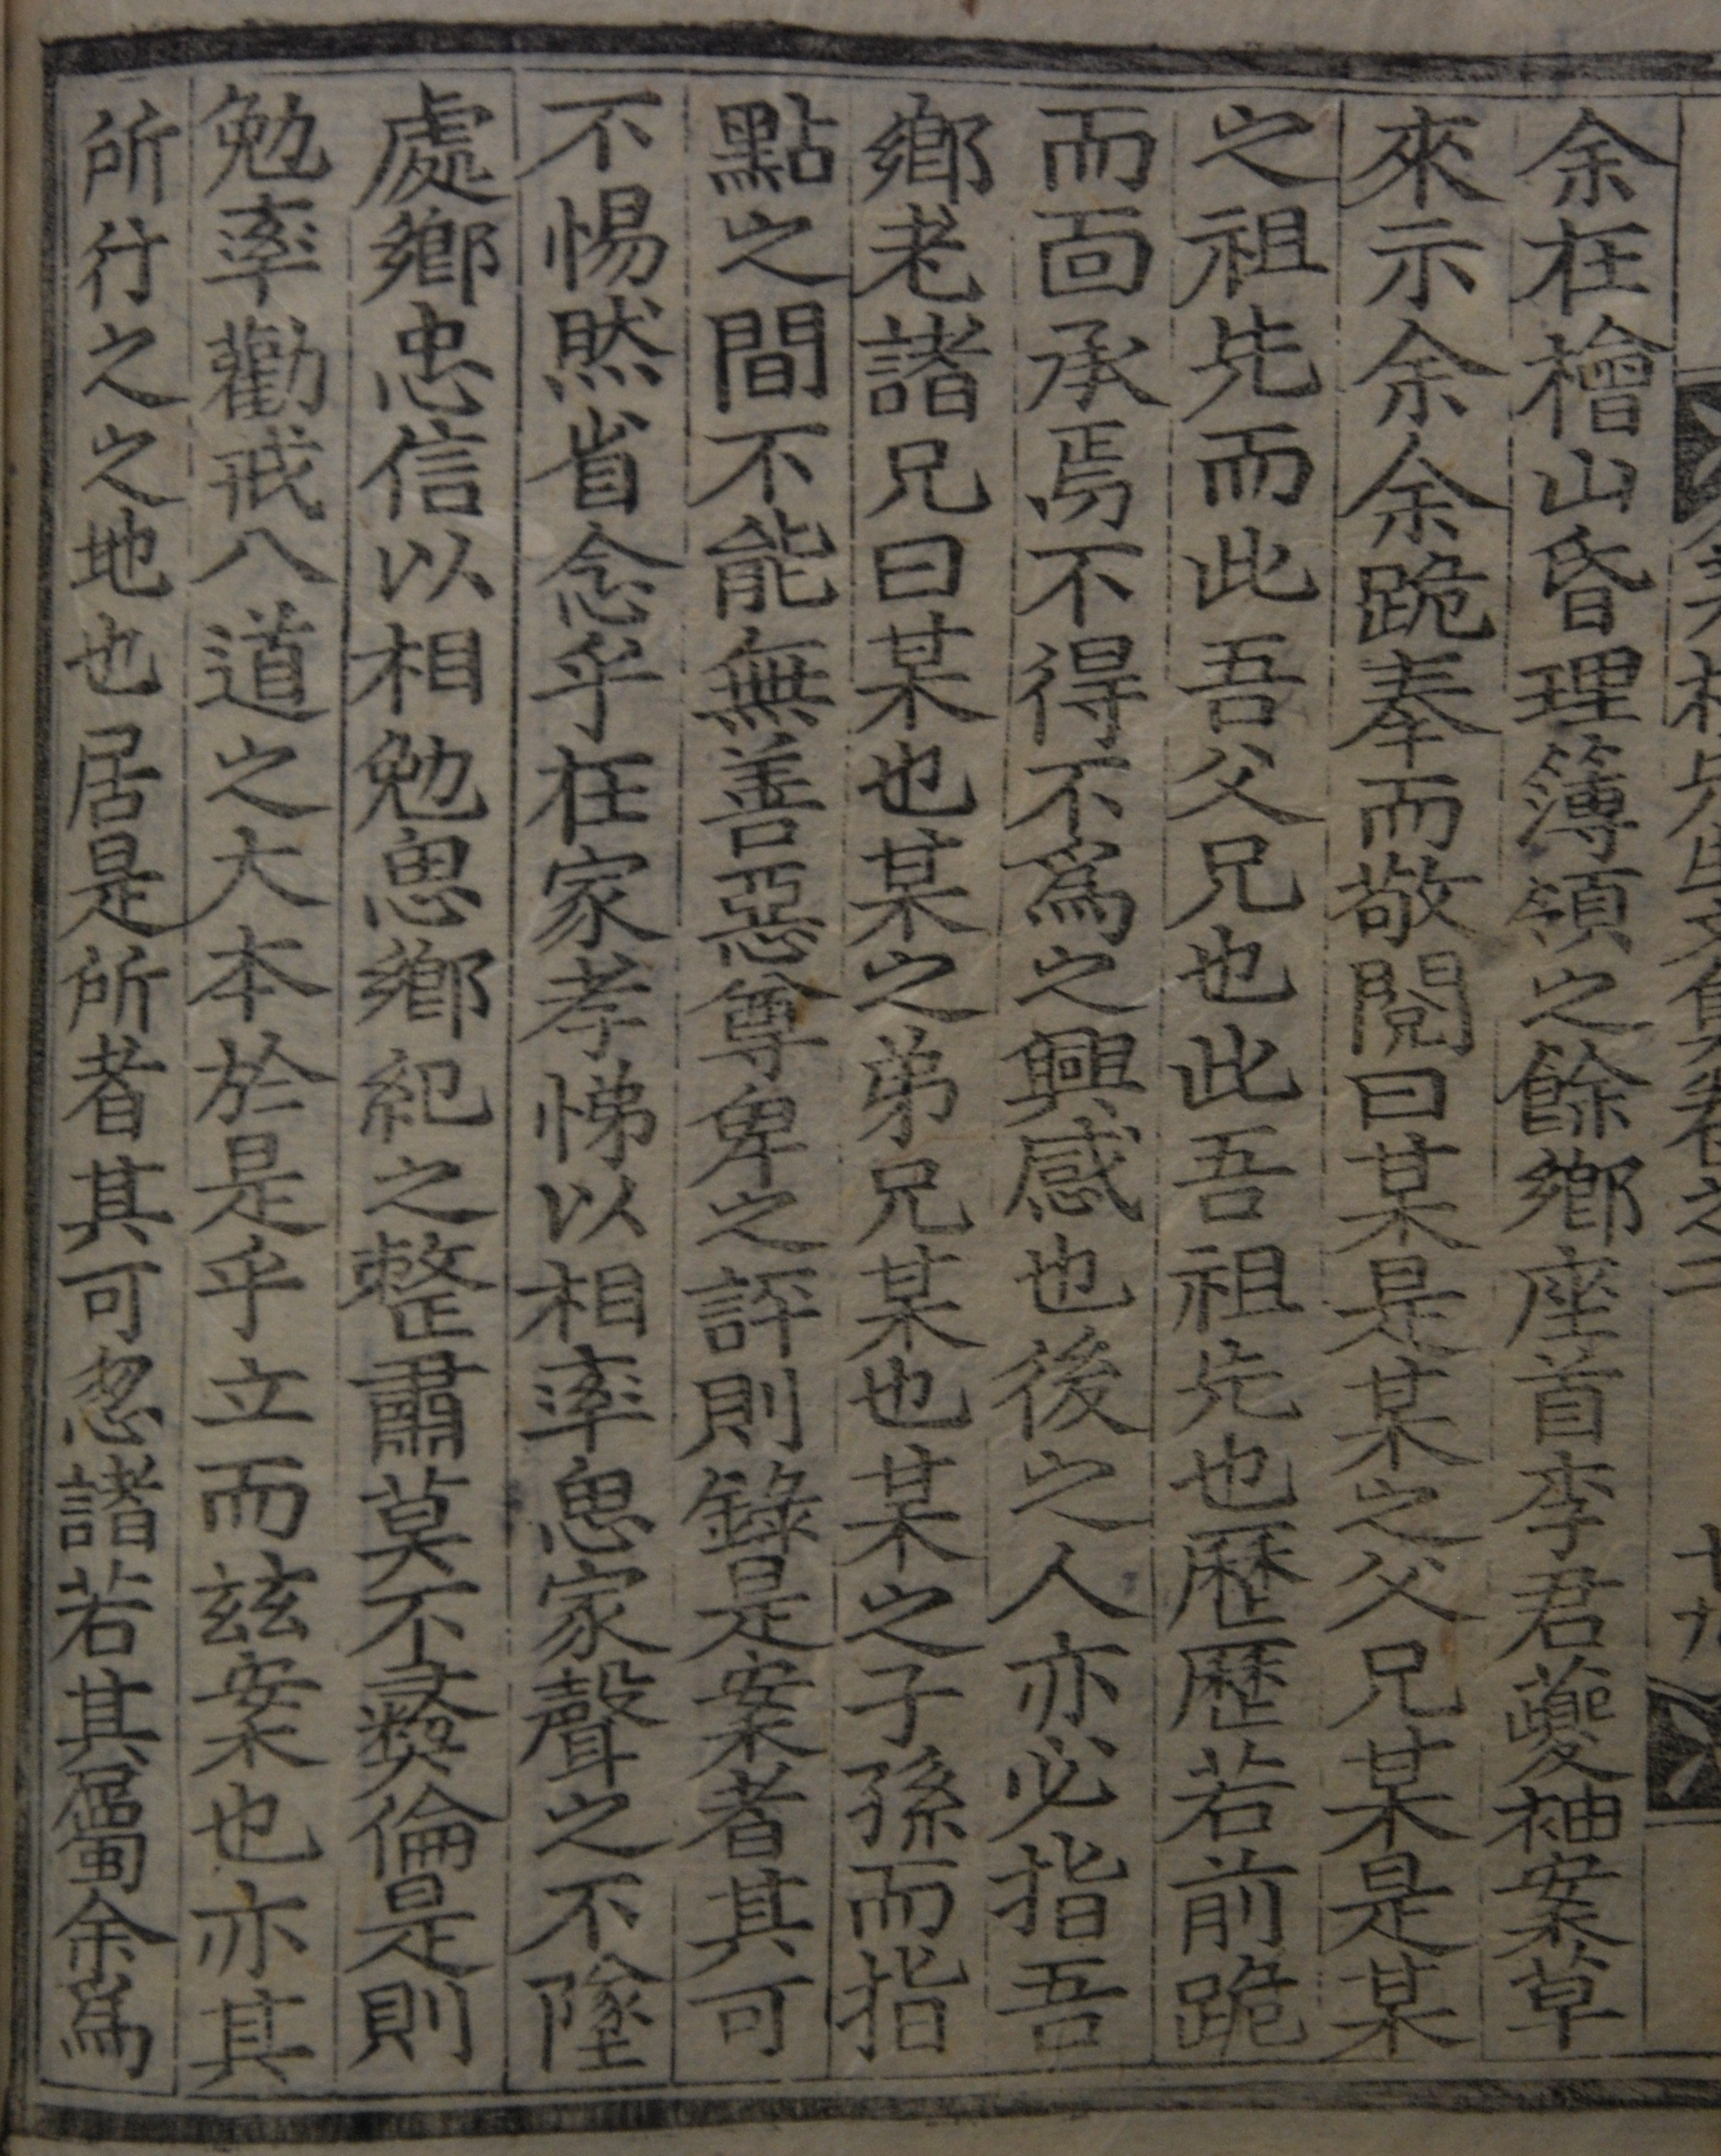 余在檜山昏理簿領之餘鄕座首李君夔袖案草
來示余余跪奉而敬閱曰某是某之父兄某是某
之祖先而此吾父兄也此吾祖先也歷歷若前跪
而面承焉不得不爲之興感也後之人亦必指吾
鄕老諸兄曰某也某之弟兄某也某之子孫而指
點之間不能無善惡尊卑之評則錄是案者其可
不惕然省念乎在家孝悌以相率思家聲之不墜
處鄕忠信以相勉思鄕紀之整肅莫不彛倫是則
勉率勸戒八道之大本於是乎立而玆案也亦其
所行之之地也居是所者其可忽諸若其屬余爲